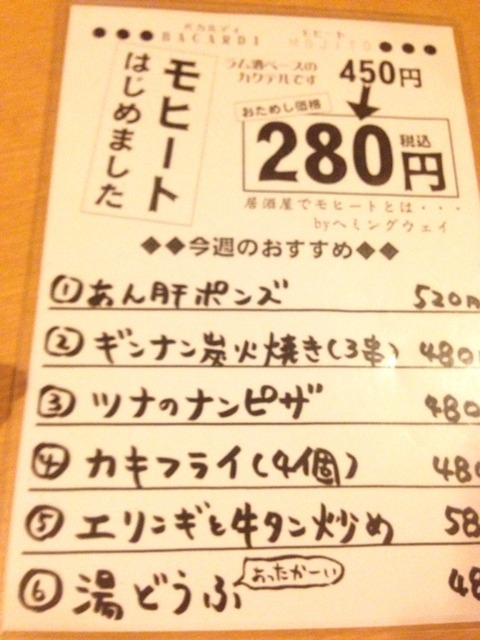 バカルディ モヒート
●●● BACARDI MOJITO ●●●
モヒート
はじめました
ラム酒ベースの
カクテルです
450円
おためし価格
280円 税込
居酒屋でモヒートとは・・・
byヘミングウェイ
◆◆今週のおすすめ◆◆
① あん肝ポンズ 520円
② ギンナン炭火焼き(3串) 480
③ ツナのナンピザ 480
④ カキフライ(4個) 480
⑤ エリンギと牛タン炒め 58
⑥ 湯どうふ あったかーい 48